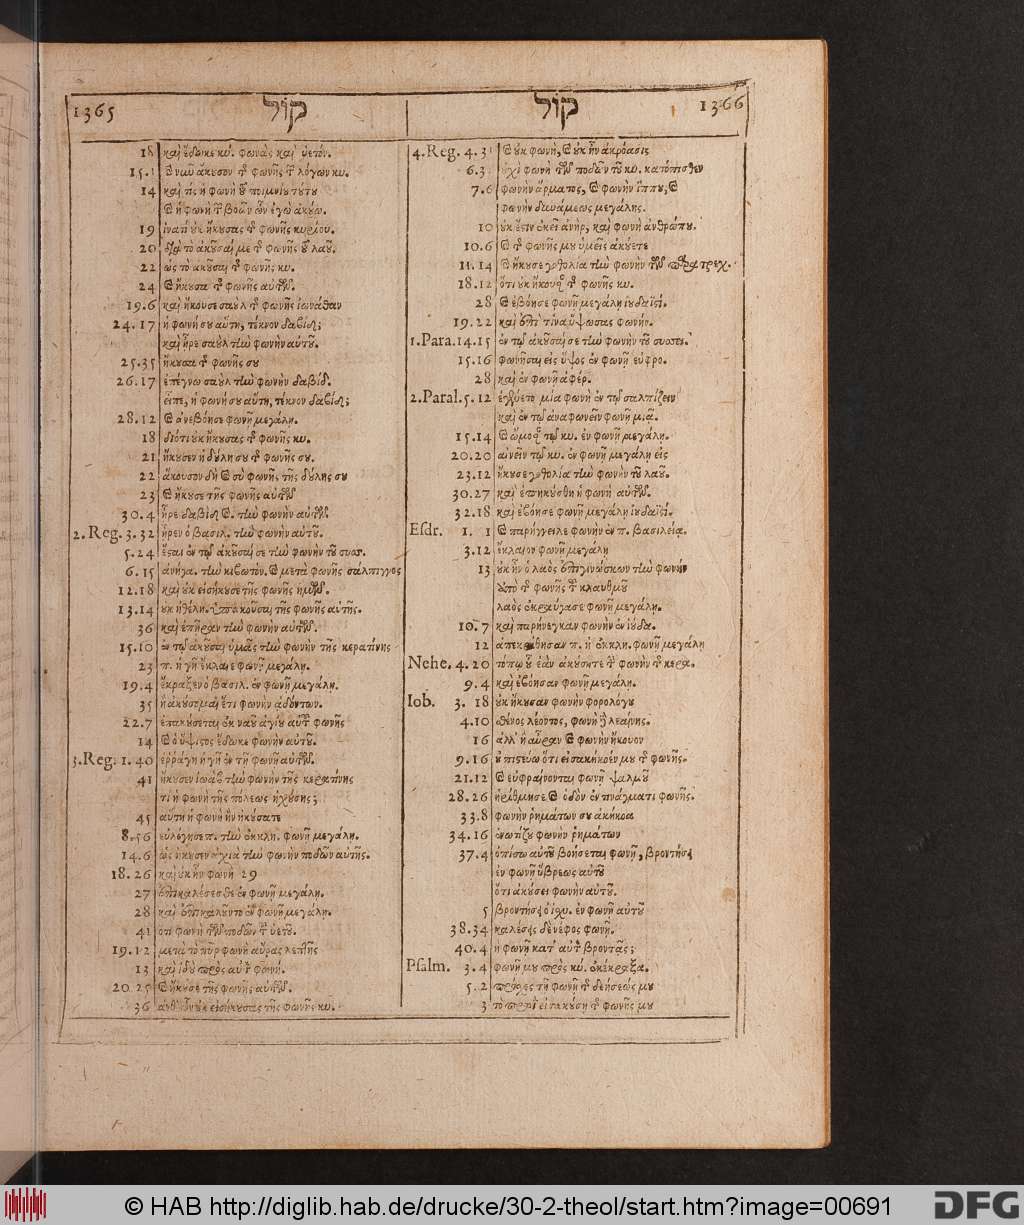 1365 קול קול 1366
18 καὶ ἔδωκε κύ. φωνὰς καὶ ὑετόν.
15. 1 καὶ νῦν ἄκουσον τῆς φωνῆς τῶν λόγων κυ.
14 καὶ τίς ἡ φωνὴ τοῦ ποιμνίου τούτου
καὶ ἡ φωνὴ τῶν βοῶν ὧν ἐγὼ ἀκούω.
19 ἱνατί οὐκ ἤκουσας τῆς φωνῆς κυρίου.
20 διὰ τὸ ἀκοῦσαί με τῆς φωνῆς τοῦ λαοῦ.
22 ὡς τὸ ἀκοῦσαι τῆς φωνῆς κυ.
24 καὶ ἤκουσα τῆς φωνῆς αὐτῶν.
19.6 καὶ ἤκουσε σαοὺλ τῆς φωνῆς ἰωνάθαν
24.17 ἡ φωνή σου αὕτη, τέκνον δαβίδ;
καὶ ἦρε σαοὺλ τὴν φωνὴν αὐτοῦ.
25.35 ἤκουσα τῆς φωνῆς σου
26.17 ἐπέγνω σαοὺλ τὴν φωνὴν δαβίδ.
εἶπε, ἡ φωνή σου αὕτη, τέκνον δαβίδ;
28.12 καὶ ἀνεβόησε φωνῇ μεγάλῃ.
18 διότι οὐκ ἤκουσας τῆς φωνῆς κυ.
21 ἤκουσεν ἡ δούλη σου τῆς φωνῆς σου.
22 ἄκουσον δὴ καὶ σὺ φωνῆς τῆς δούλης σου
23 καὶ ἤκουσε τῆς φωνῆς αὐτῶν
30.4 ἦρε δαβὶδ καὶ. τὴν φωνὴν αὐτῶν.
2. Reg. 3. 32 ἦρεν ὁ βασιλ. τὴν φωνὴν αὐτοῦ.
5.24 ἔσται ἐν τῷ ἀκοῦσαί σε τὴν φωνὴν τοῦ συσσ.
6.15 ἀνήγα. τὴν κιβωτὸν. καὶ μετὰ φωνῆς σάλπιγγος
12.18 καὶ οὐκ εἰσήκουσε τῆς φωνῆς ἡμῶν.
13.14 οὐκ ἠθέλη. ὑπακοῦσαι τῆς φωνῆς αὐτῆς.
36 καὶ ἐπῆραν τὴν φωνὴν αὐτῶν.
15.10 ἐν τῷ ἀκοῦσαι ὑμᾶς τὴν φωνὴν τῆς κερατίνης
23 π. ἡ γῆ ἔκλαιε φωνῇ μεγάλῃ.
19.4 ἔκραξεν ὁ βασιλ. ἐν φωνῇ μεγάλῃ.
35 ἢ ἀκούσομαι ἔτι φωνὴν ἀδόντων.
22.7 ἐπακούσεται ἐκ ναοῦ ἁγίου αὐτοῦ φωνῆς
14 καὶ ὁ ὕψιστος ἔδωκε φωνὴν αὐτοῦ.
3. Reg. 1. 40 ἐρράγη ἡ γῆ ἐν τῇ φωνῇ αὐτῶν.
41 ἤκουσεν ἰωὰβ τὴν φωνὴν τῆς κερατίνης
τί ἡ φωνὴ τῆς πόλεως ἠχούσης;
45 αὕτη ἡ φωνὴ ἣν ἠκούσατε
8.56 εὐλόγησε π. τὴν ἐκκλη. φωνῇ μεγάλῃ.
14.6 ὡς ἤκουσεν ἀχιὰ τὴν φωνὴν ποδῶν αὐτῆς.
18.26 καὶ οὐκ ἦν φωνὴ 29
27 ἐπικαλέσεσθε ἐν φωνῇ μεγάλῃ.
28 καὶ ἐπικαλοῦντο ἐν φωνῇ μεγάλῃ.
41 ὅτι φωνὴ τῶν ποδῶν τοῦ ὑετοῦ.
19.12 μετὰ τὸ πῦρ φωνὴ αὔρας λεπτῆς
13 καὶ ἰδοὺ πρὸς αὐτὸν φωνή.
20.25 καὶ ἤκουσε τῆς φωνῆς αὐτῶν.
36 ἀνθ' ὧν οὐκ εἰσήκουσας τῆς φωνῆς κυ.
4. Reg. 4. 31 καὶ οὐκ φωνή, καὶ οὐκ ἦν ἀκρόασις
6.3 οὐχὶ φωνὴ τῶν ποδῶν τοῦ κυ. κατόπισθεν
7.6 φωνὴν ἅρματος, καὶ φωνὴν ἵππου, καὶ
φωνὴν δυνάμεως μεγάλης.
10 οὐκ ἔστιν ἐκεῖ ἀνήρ, καὶ φωνὴ ἀνθρώπου.
10.6 καὶ τῆς φωνῆς μου ὑμεῖς ἀκούετε
11.14 καὶ ἤκουσε γοθολία τὴν φωνὴν τῶν παρατρεχ.
18.12 ὅτι οὐκ ἤκουσαν τῆς φωνῆς κυ.
28 καὶ ἐβόησε φωνῇ μεγάλῃ ἰουδαϊστί.
19.22 καὶ ἐπὶ τίνα ὕψωσας φωνήν.
1. Para. 14.15 ἐν τῷ ἀκοῦσαί σε τὴν φωνὴν τοῦ συσσει.
15.16 φωνῆσαι εἰς ὕψος ἐν φωνῇ εὐφρο.
28 καὶ ἐν φωνῇ ἀφέρ.
2. Paral. 5. 12 ἐγένετο μία φωνὴ ἐν τῷ σαλπίζειν
καὶ ἐν τῷ ἀναφωνεῖν φωνῇ μιᾷ.
15.14 καὶ ὤμοσαν τῷ κυ. ἐν φωνῇ μεγάλῃ.
20.20 αἰνεῖν τῷ κυ. ἐν φωνῇ μεγάλῃ εἰς
23.12 ἤκουσε γοθολία τὴν φωνὴν τοῦ λαοῦ.
30.27 καὶ ἐπηκούσθη ἡ φωνὴ αὐτῶν.
32.18 καὶ ἐβόησε φωνῇ μεγάλῃ ἰουδαϊστί.
Esdr. 1. 1 καὶ παρήγγειλε φωνὴν ἐν π. βασιλείᾳ.
3.12 ἔκλαιον φωνῇ μεγάλῃ
13 οὐκ ἦν ὁ λαὸς ἐπιγινώσκων τὴν φωνὴν
ἀπὸ τῆς φωνῆς τοῦ κλαυθμοῦ
λαὸς ἐκραύγασε φωνῇ μεγάλῃ.
10. 7 καὶ παρήνεγκαν φωνὴν ἐν ἰούδα.
12 ἀπεκρίθησαν π. ἡ ἐκκλη. φωνῇ μεγάλῃ
Nehe. 4. 20 τόπῳ οὗ ἐὰν ἀκούσητε τῆς φωνὴν τῆς κερα.
9. 4 καὶ ἐβόησαν φωνῇ μεγάλῃ.
Iob. 3. 18 οὐκ ἤκουσαν φωνὴν φορολόγου
4.10 σθένος λέοντος, φωνὴ δὲ λεαίνης.
16 ἀλλ' ἢ αὔραν καὶ φωνὴν ἤκουον
9.16 οὐ πιστεύω ὅτι εἰσακήκοέν μου τῆς φωνῆς.
21.12 καὶ εὐφραίνονται φωνῇ ψαλμοῦ
28.26 ἠρίθμησε καὶ ὁδὸν ἐν τινάγματι φωνῆς.
33.8 φωνὴν ῥημάτων σου ἀκήκοα
34.16 ἐνωτίζου φωνὴν ῥημάτων
37.4 ὀπίσω αὐτοῦ βοήσεται φωνῇ, βροντήσει
ἐν φωνῇ ὕβρεως αὐτοῦ
ὅτι ἀκούσει φωνὴν αὐτοῦ.
5 βροντήσει ὁ ἰσχυ. ἐν φωνῇ αὐτοῦ
38.34 καλέσεις δὲ νέφος φωνῇ.
40.4 ἢ φωνῇ κατ' αὐτὸν βροντᾷς;
Psalm. 3.4 φωνῇ μου πρὸς κύ. ἐκέκραξα.
5.2 πρόσχες τῇ φωνῇ τῆς δεήσεώς μου
3 τὸ πρωὶ εἰσακούσῃ τῆς φωνῆς μου
© HAB http://diglib.hab.de/drucke/30-2-theol/start.htm?image=00691 DFG